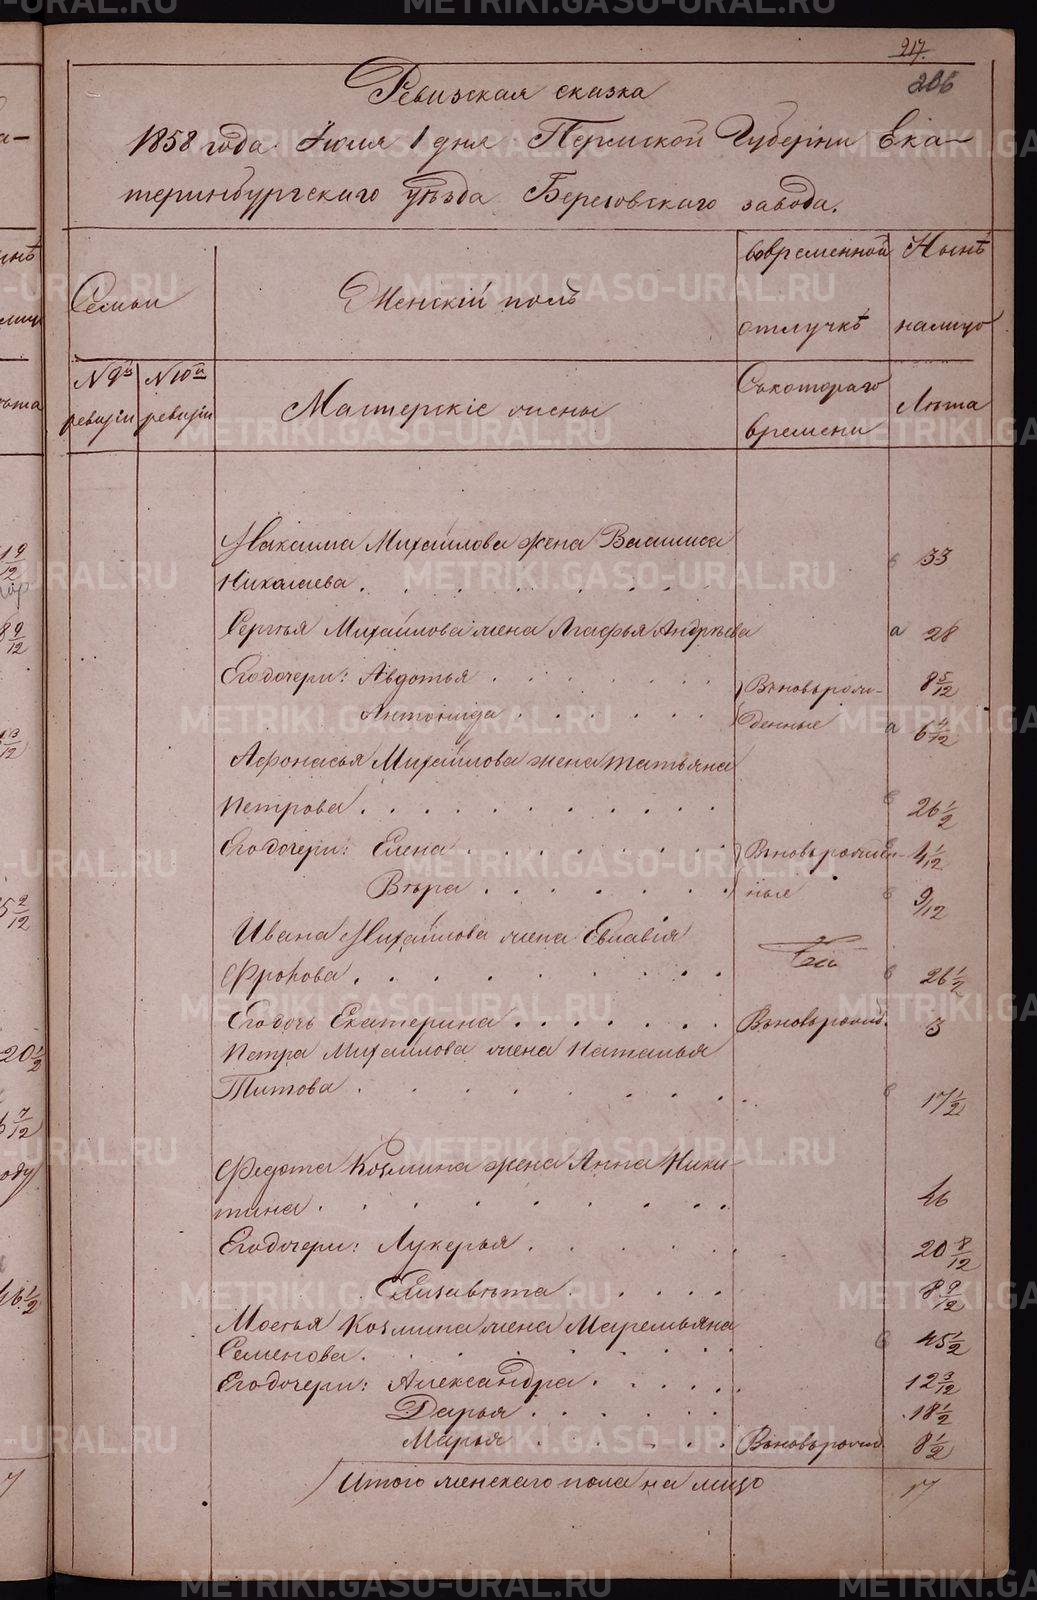 217.
206
Ревизская сказка
1858 года Июля 1 дня Пермской Губерніи Ека-
теринбургскаго уѣзда Березовскаго завода.
Семьи
Женскій полъ
Вовременной
отлучкѣ
Нынѣ
налицо
№ 9й
ревизіи
№ 10й
ревизіи
Мастерскіе жены
Съкотораго
времени
Лѣта
Максима Михайлова жена Василиса
Николаева . 33
Сергѣя Михайлова жена Агафья Андрѣева а 28
Егодочери: Авдотья . Вновьрож- 8 5/12
Антонида . денные а 6 4/12
Афонасья Михайлова жена татьяна
Петрова . 26 1/2
Егодочери: Елена . Вновьрожден- 4 1/12
Вѣра . ные 9/12
Ивана Михайлова жена Евлавія
Фролова . 26 1/2
Егодочь Екатерина . Вновьрожд. 3
Петра Михайлова жена Наталья
Титова . 17 1/2
Федота Козмина жена Анна Ники-
тина . 46
Егодочери: Лукерья . 20 8/12
Елизавѣта . 8 9/12
Мосѣя Козмина жена Маремьяна
Семенова . 45 1/2
Егодочери: Александра . 12 3/12
Дарья . 18 1/2
Марья . Вновьрожд 8 1/2
Итого женскаго пола на лицо 17
METRIKI.GASO-URAL.RU